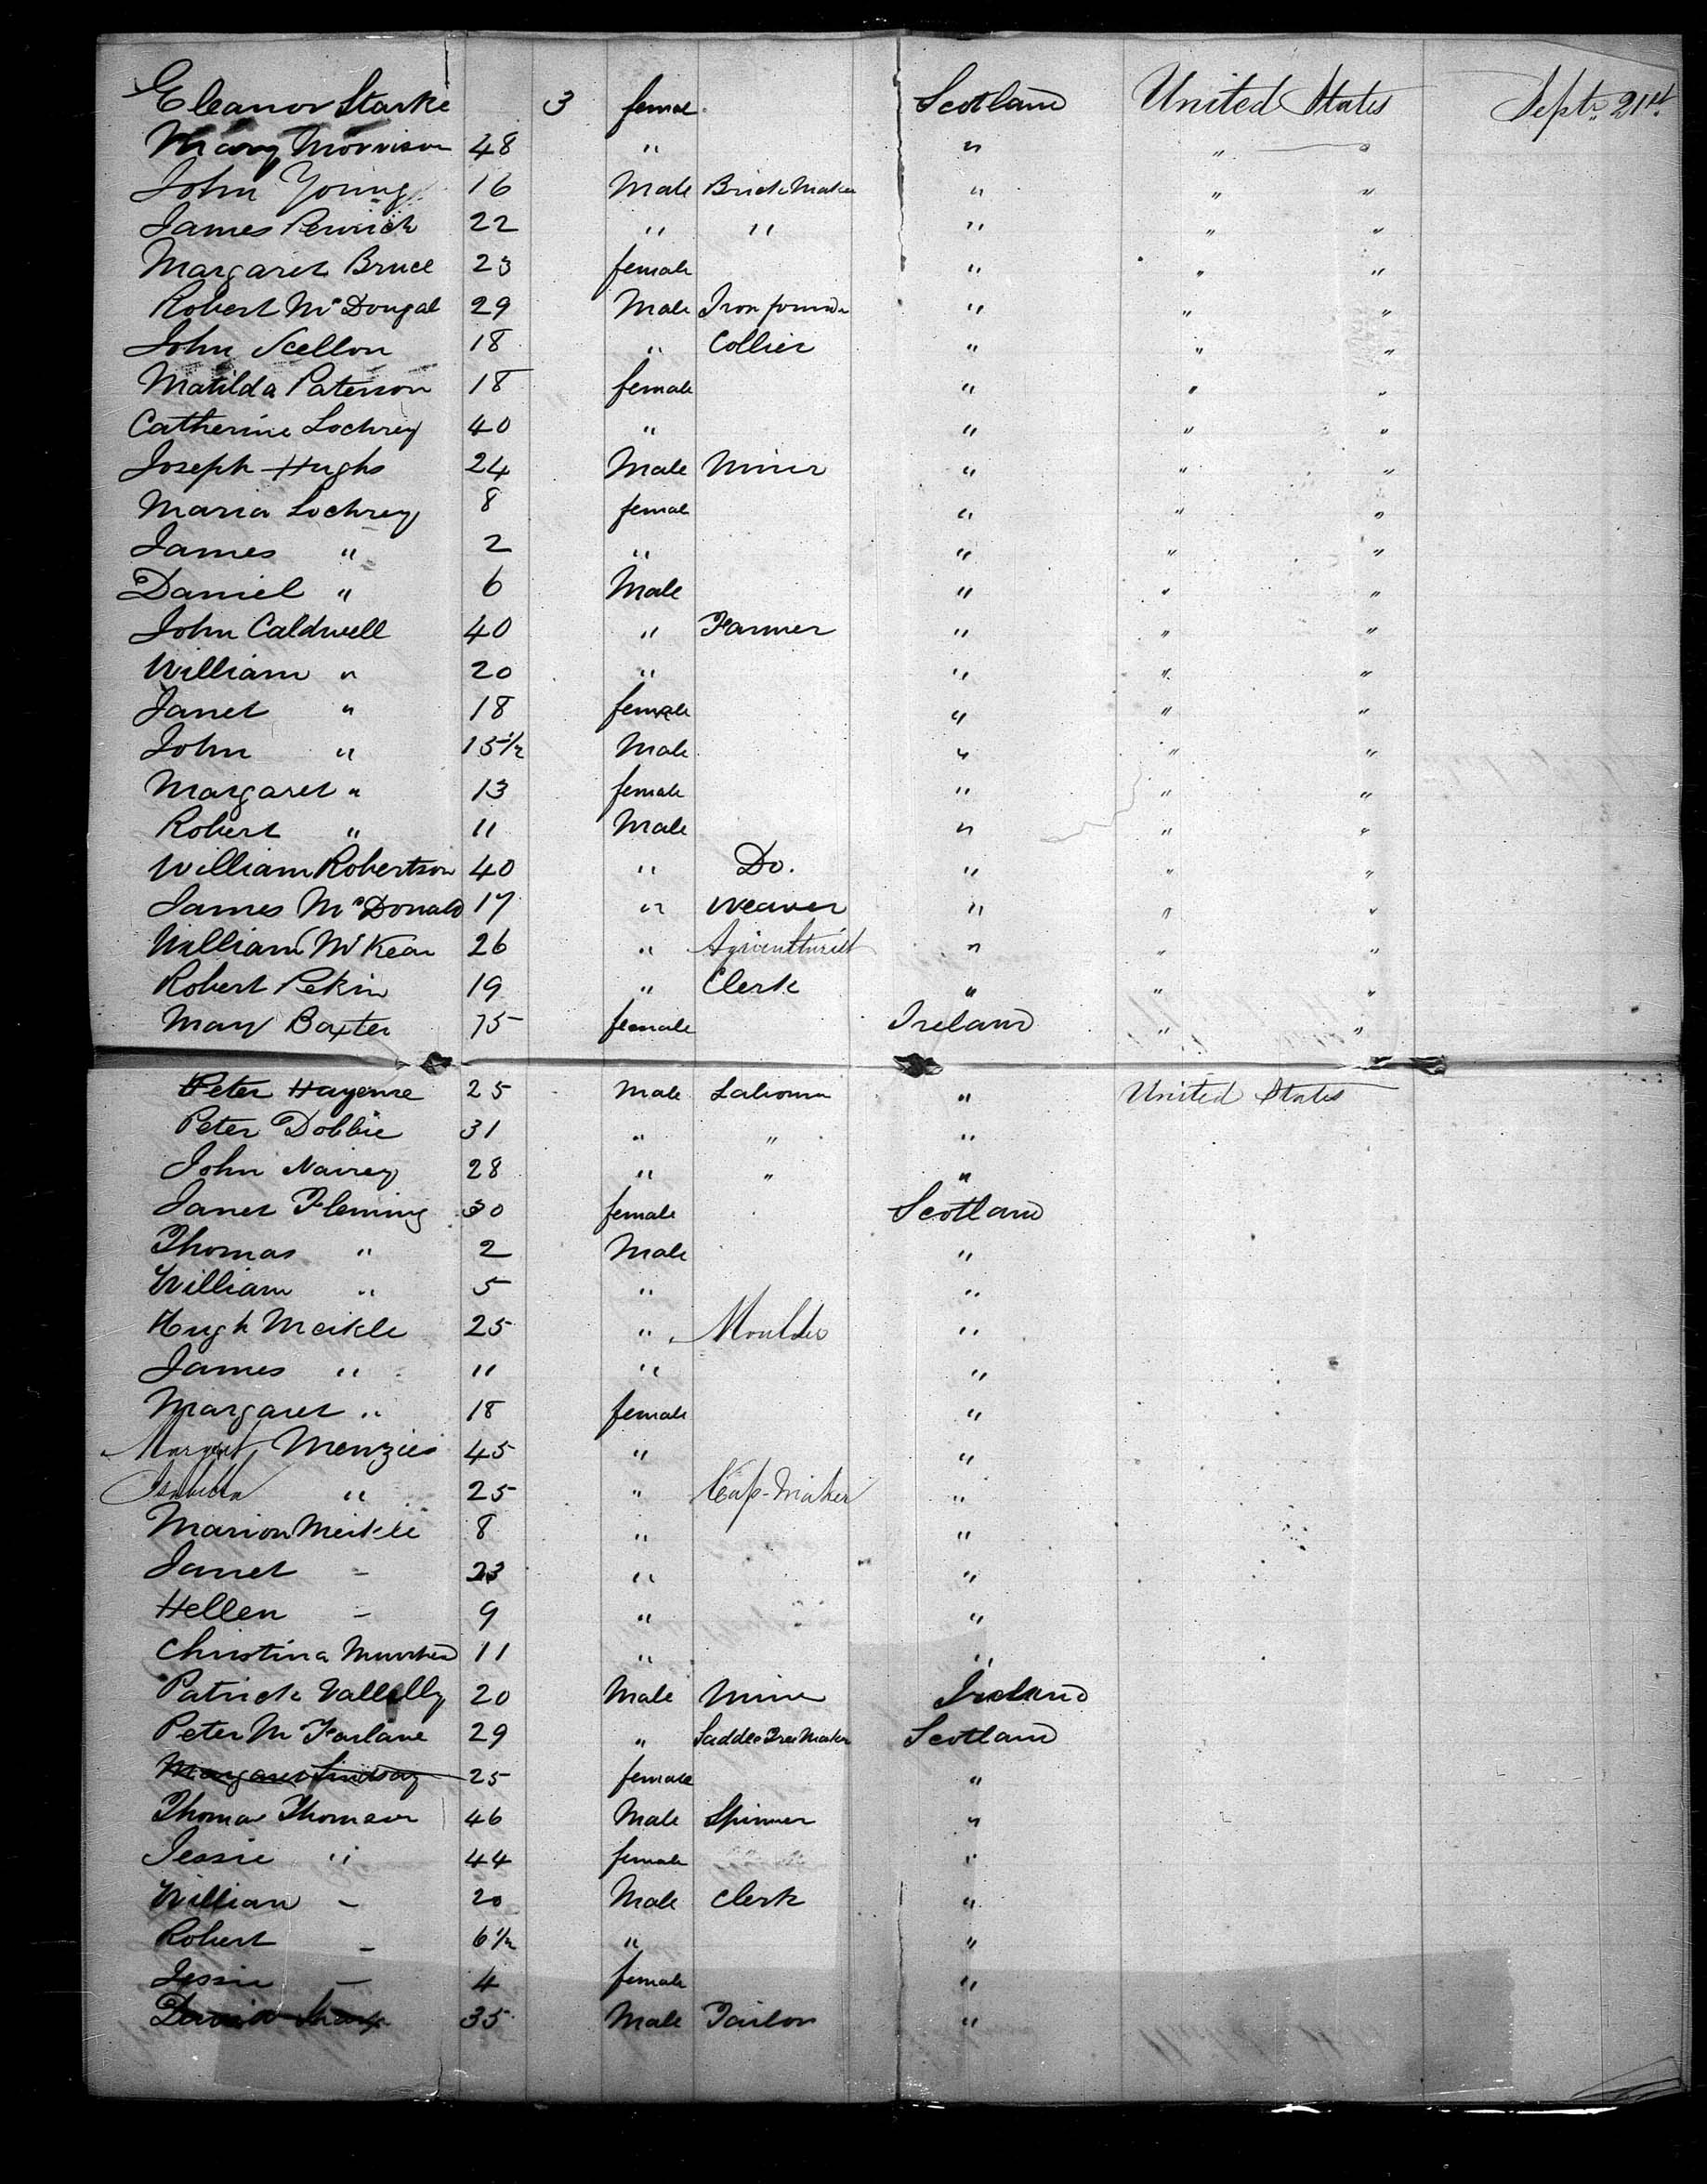 Eleanor Starke 3 female Scotland United States Sept. 21st
Mary Morrison 48 " " " "
John Young 16 Male Brick Maker " " "
James Renwick 22 " " " " "
Margaret Bruce 23 female " " "
Robert McDougal 29 Male Iron founder " " "
John Scellon 18 " Collier " " "
Matilda Paterson 18 female " " "
Catherine Lochrey 40 " " " "
Joseph Hughs 24 Male Miner " " "
Maria Lochrey 8 female " " "
James " 2 " " " "
Daniel " 6 Male " " "
John Caldwell 40 " Farmer " " "
William " 20 " " " "
Janet " 18 female " " "
John " 15 1/2 Male " " "
Margaret " 13 female " " "
Robert " 11 Male " " "
William Robertson 40 " Do. " " "
James McDonald 17 " Weaver " " "
William McKean 26 " Agriculturist " " "
Robert Pekin 19 " Clerk " " "
Mary Baxter 75 female Ireland " "
Peter 25 Male Labourer " United States
Peter Dobbie 31 " " "
John Nairey 28 " " "
Janet Fleming 30 female Scotland
Thomas " 2 Male "
William " 5 " "
Hugh Meikle 25 " Moulder "
James " 11 " "
Margaret " 18 female "
Margaret Menzies 45 " "
Isabella " 25 " Cap-Maker "
Marion Meikle 8 " "
Janet - 23 " "
Hellen - 9 " "
Christina 11 " "
Patrick Vallelly 20 Male Miner Ireland
Peter McFarlane 29 " Saddle Tree Maker Scotland
Margaret Lindsay 25 female "
Thomas Thomson 46 Male Spinner "
Jessie " 44 female "
William - 20 Male Clerk "
Robert - 6 1/2 " "
Jessie - 4 female "
David Sharp 35 Male Tailor "